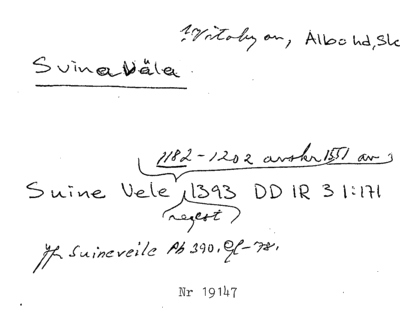 Vitaby sn, Albo hd, Sk
Svinaväla
1182-1202 avskr 1551 av
Suine Vele 1393 DD 1R 3 1:171
regest
jf Suineveile Ab 390. Ef-78.
Nr 19147